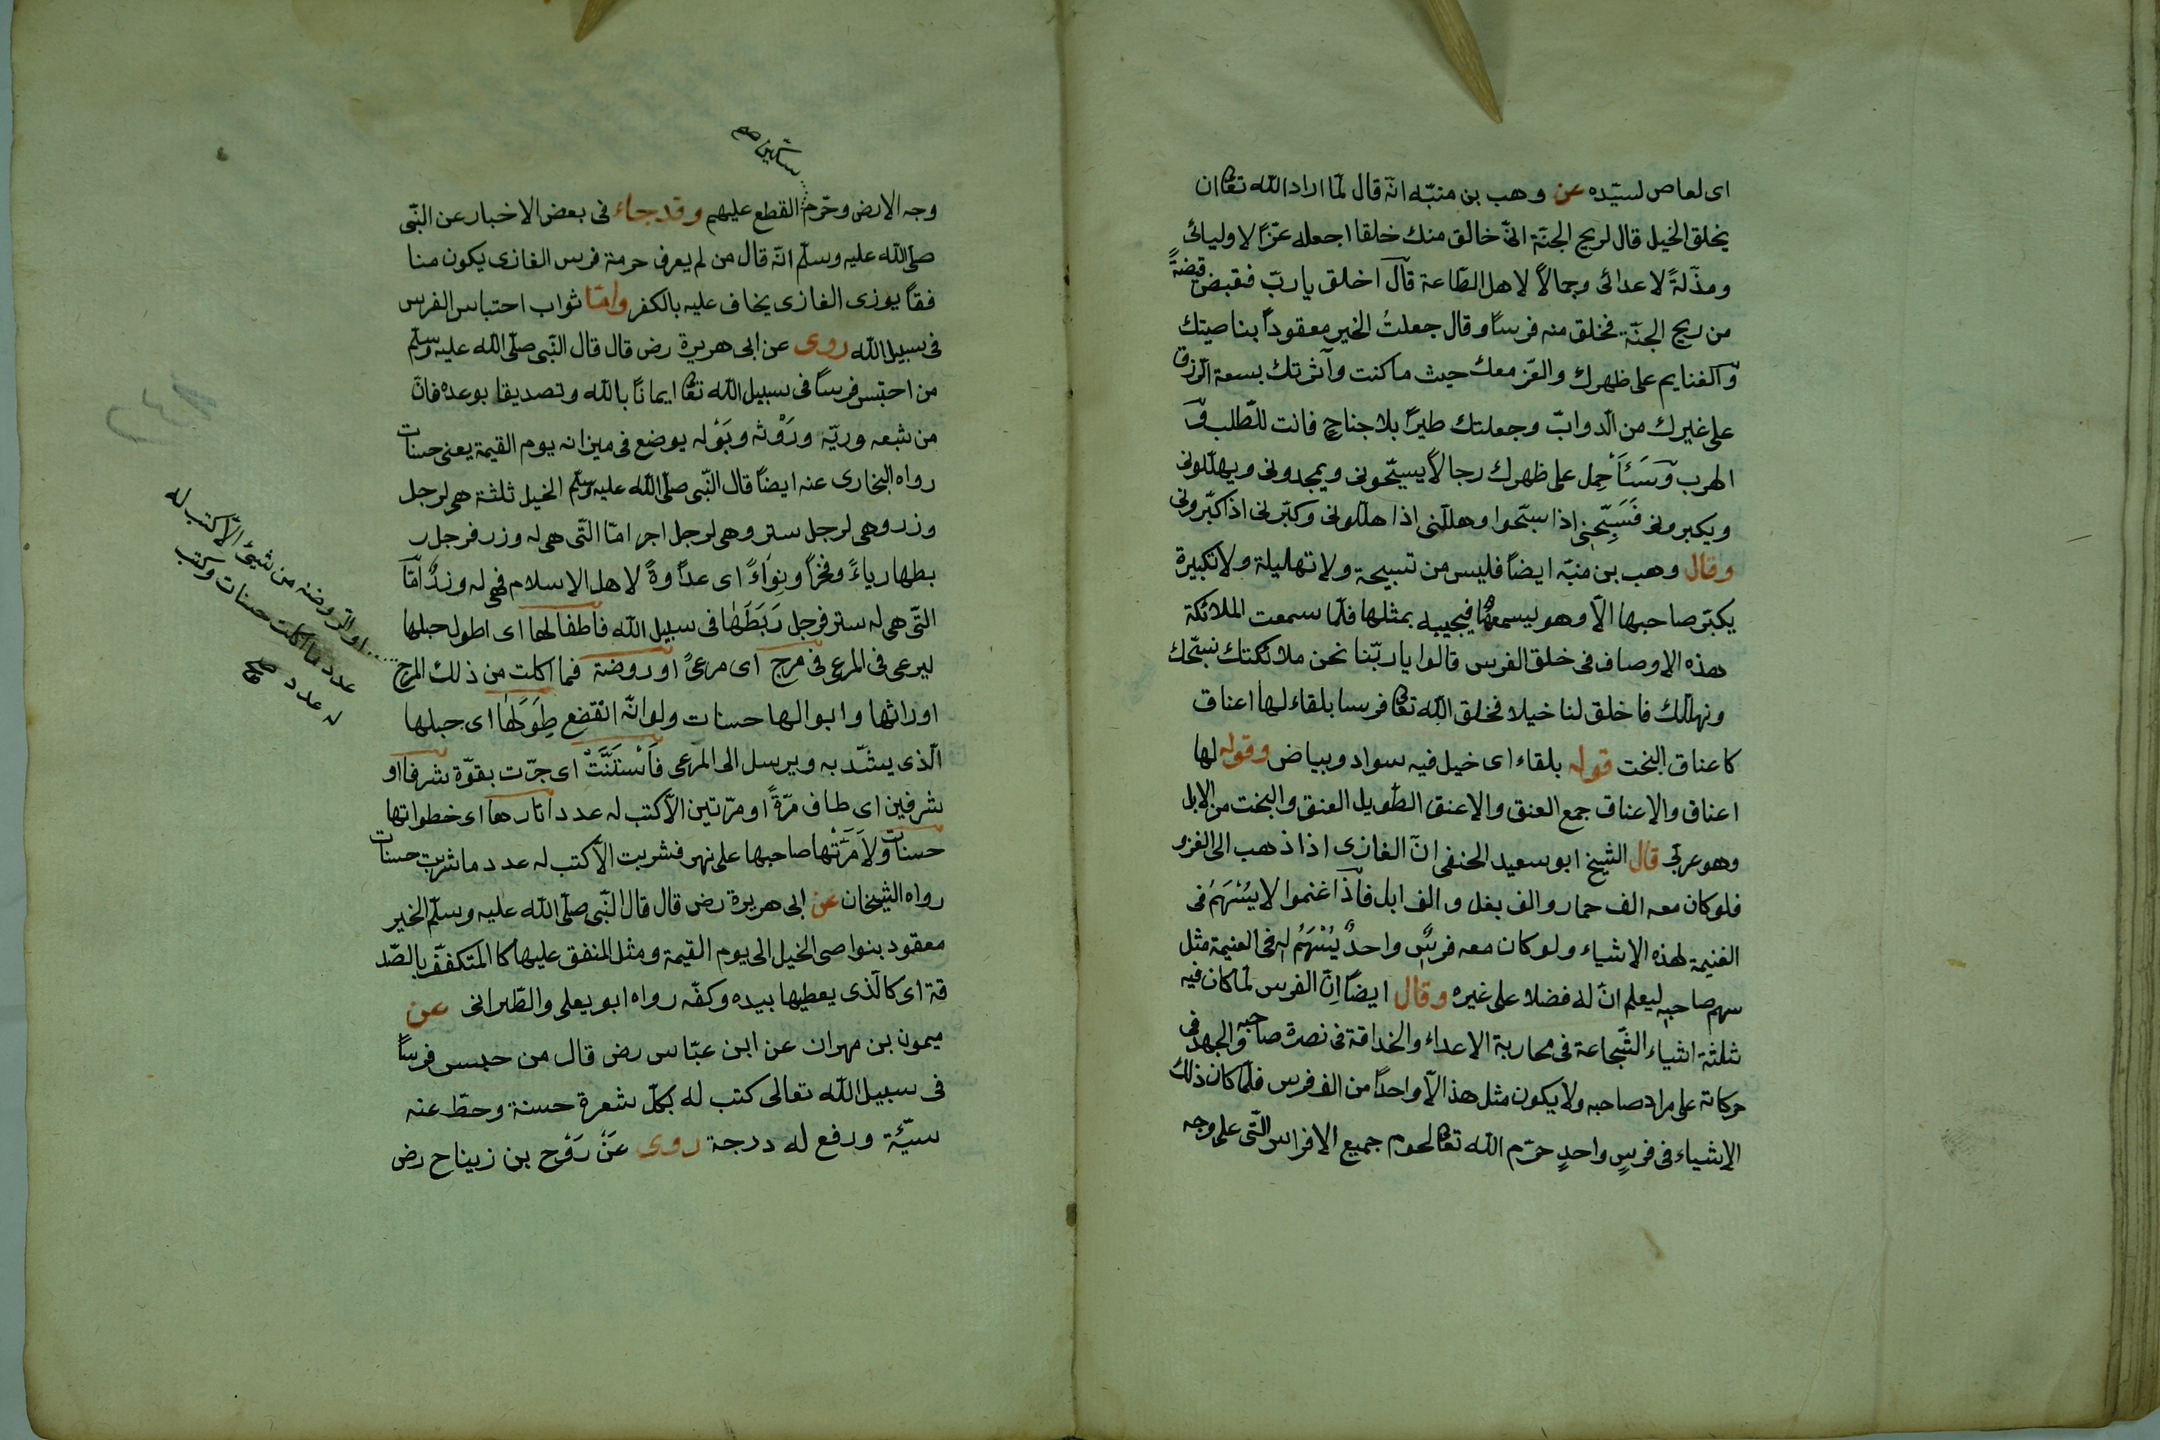 اى لعاص لسيّده عن وهب بن منبّه انّه قال لمّا اراد الله تعا ان
يخلق الخيل قال لريح الجنّة انّى خالق منك خلقا اجعله عزّا لاوليائى
ومذّلةً لاعدائى وجمالاً لاهل الطّاعة قال اخلق ياربّ فقبض قبضةً
من ريح الجنّة فخلق منه فرسًا وقال جعلتُ الخير معقوداً بناصيتك
والغنايم على ظهرك والعزّ معك حيث ما كنت وآثرتك بسعة الرّزق
على غيرك من الدّوابّ وجعلتك طيرًا بلا جناحٍ فانت للطّلب و
الهرب وَسَئَاَحْمِل على ظهرك رجالاً يسبّحونى ويمجدونى ويهلّلونى
ويكبرونى فَسَبِّحِنى اذا سبّحوا وهلّلنى اذا هلّلونى وكبّرنى اذا كبّرونى
وقال وهب بن منبّه ايضاً فليس من تسبيحة ولا تهليلة ولا تكبيرة
يكبّر صاحبها الاّ وهو يسمعها فيجيبه بمثلها فلمّا سمعت الملائكة
هذه الاوصاف فى خلق الفرس قالوا ياربّنا نحن ملائكتك نسبّحك
ونهلّلك فاخلق لنا خيلا فخلق الله تعا فرسا بلقاء لها اعناق
كاعناق البخت قوله بلقاء اى خيل فيه سواد وبياض وقوله لها
اعناق والاعناق جمع العنق والاعنق الطّويل العنق والبخت من الابل
وهو عربىّ قال الشيخ ابو سعيد الحنفى انّ الغازى اذا ذهب الى الغزو
فلو كان معه الف حمار والف بغل والف ابل فاذا غنموا لا يُسْهَمُ فى
الغنيمة لهذه الاشياء ولو كان معه فرسٌ واحدٌ يُسْهَمُ له فى الغنيمة مثل
سهم صاحبه ليعلم انّ له فضلا على غيره وقال ايضاً اِنّ الفرس لمّا كان فيه
ثلثة اشياء الشّجاعة فى محاربة الاعداء والحذاقة فى نصرة صاحبه والجهد فى
حركاته على مراد صاحبه ولا يكون مثل هذا الاّ واحداً من الف فرس فلمّا كان ذلك
الاشياء فى فرسٍ واحدٍ حرّم الله تعا لحوم جميع الافراس الّتى على وجه
وجه الارض وحرّم القطع عليهم وقد جاء فى بعض الاخبار عن النّبى
صلّى الله عليه وسلّم انّه قال من لم يعرف حرمة فرس الغازى يكون منا
فقاً يوزى الغازى يخاف عليه بالكفر وامّا ثواب احتباس الفرس
فى سبيل الله روى عن ابى هريرة رض قال قال النّبى صلّى الله عليه وسلّم
من احتبس فرسًا فى سبيل الله تعا ايمانًا بالله وتصديقا بوعده فانّ
من شبعه وريّه ورَوْثه وبَوْله يوضع فى ميزانه يوم القيمة يعنى حسنات
رواه البخارى عنه ايضاً قال النّبى صلّى الله عليه وسلّم الخيل ثلثة هى لرجل
وزر وهى لرجل ستر وهى لرجل اجر امّا التّى هى له وزر فرجل ر
بطها رياءً وفخرًا ونِوَاءً اى عداوةً لاهل الاسلام فهى له وزرٌ امّا
التّى هى له ستر فرجل رَبَطَهَا فى سبيل الله فاطفا لها اى اطول حبلها
ليرعى فى المرعى فى مرج اى مرعىً او روضة فما اكلت من ذلك المرج
اوراثها وابوالها حسنات ولو انّه انقضع طِوَلَهَا اى حبلها
الّذى يشدّ به ويرسل الى المرعى فَاَسْتَنَّتْ اى جرّت بقوّة شرفا او
شرفين اى طاف مرّةً او مرّتين الاّ كتب له عدد اثارها اى خطواتها
حسنات ولا مَرَّتْها صاحبها على نهر فشربت الاّ كتب له عدد ما شربت حسنات
رواه الشيخان عن ابى هريرة رض قال قال النّبى صلّى الله عليه وسلّم الخير
معقود بنواصى الخيل الى يوم القيمة ومثل المنفق عليها كالمتكفّف بالصّد
قة اى كالّذى يعطيها بيده وكفّه رواه ابو يعلى والطّبرانى عن
ميمون بن مهران عن ابن عبّاس رض قال من حبس فرسًا
فى سبيل الله تعالى كتب له بكلّ شعرة حسنة وحطّ عنه
سيّئة ورفع له درجة روى عَنْ رَوْح بن زيناح رض
او الرّوضة من شئ الاّ كتب له
عدد ما اكلت حسنات وكتب
له عدد صح